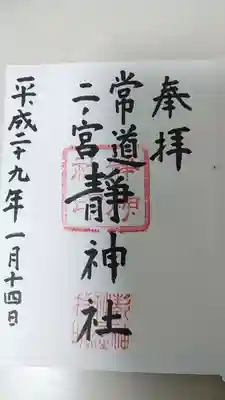 奉拝
常道
二ノ宮靜神社
平成二十九年一月十四日